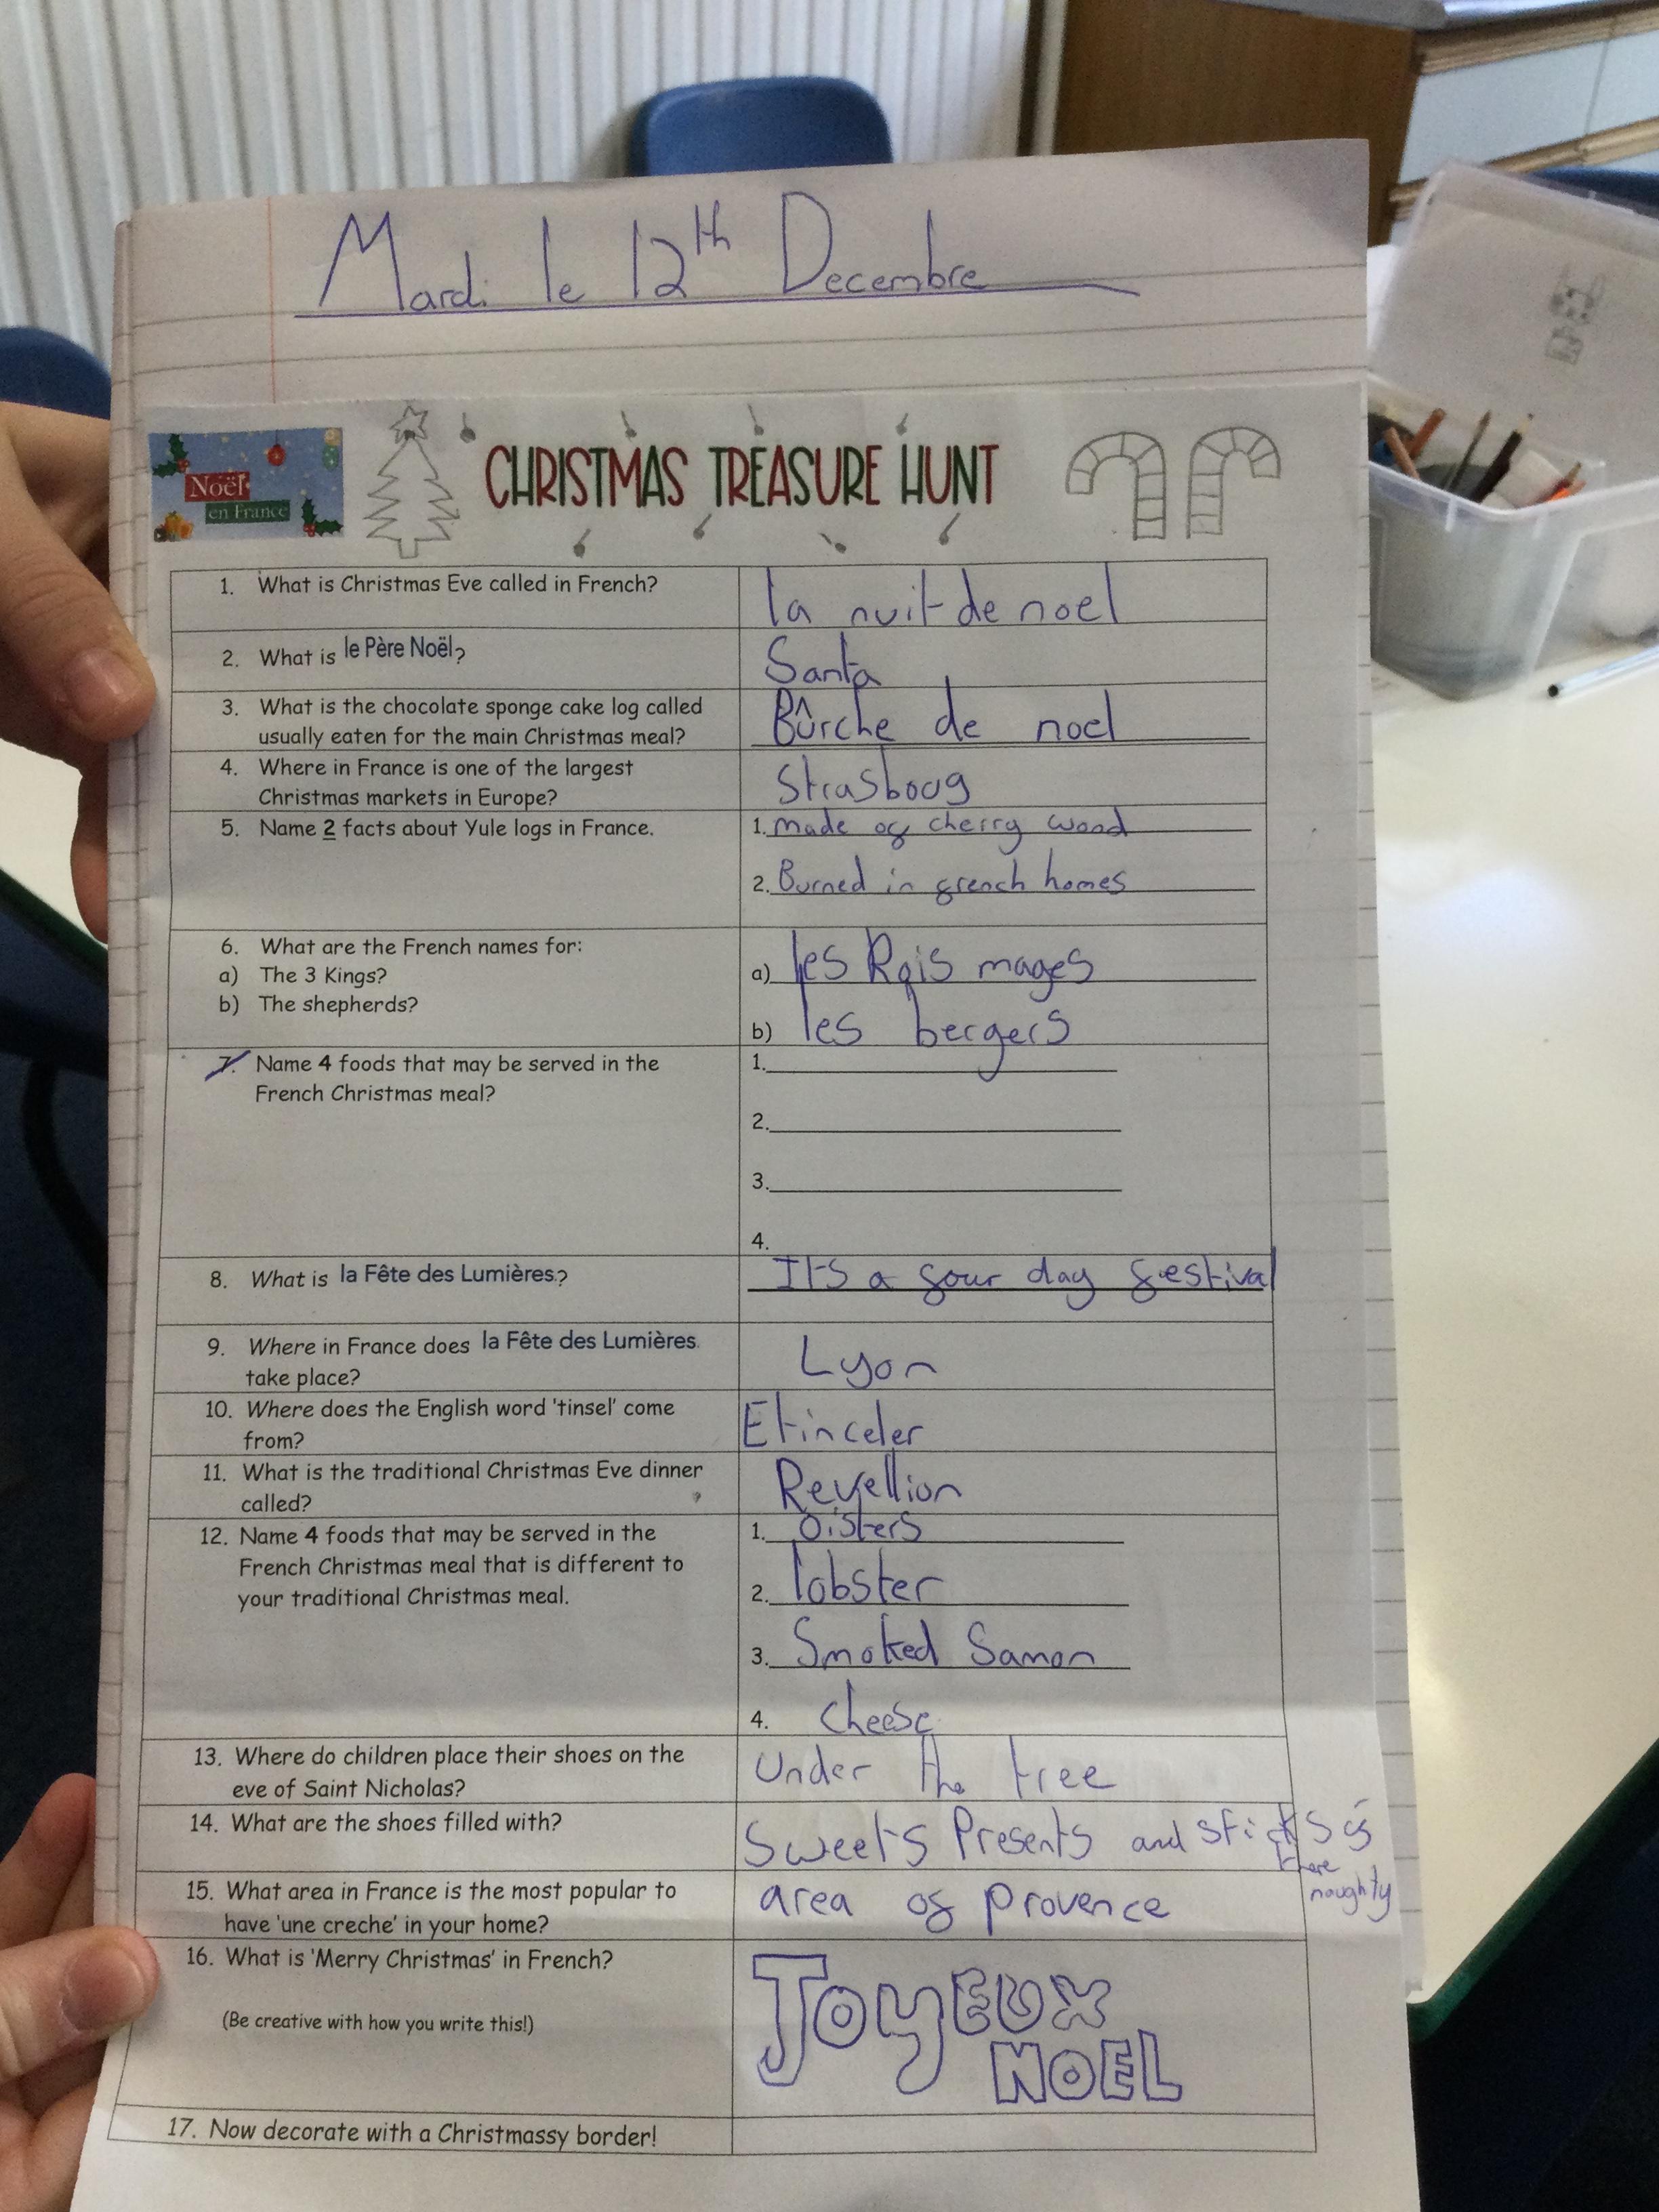 Mardi le 12th Decembre
Noël
en France
CHRISTMAS TREASURE HUNT
1. What is Christmas Eve called in French?
la nuit de noel
2. What is le Père Noël?
Santa
3. What is the chocolate sponge cake log called
usually eaten for the main Christmas meal?
Bûrche de noel
4. Where in France is one of the largest
Christmas markets in Europe?
Strasboug
5. Name 2 facts about Yule logs in France.
1. made of cherry wood
2. Burned in french homes
6. What are the French names for:
a) The 3 Kings?
b) The shepherds?
a) les Rois mages
b) les bergers
7. Name 4 foods that may be served in the
French Christmas meal?
1.
2.
3.
4.
8. What is la Fête des Lumières?
Its a four day festival
9. Where in France does la Fête des Lumières
take place?
Lyon
10. Where does the English word 'tinsel' come
from?
Etinceler
11. What is the traditional Christmas Eve dinner
called?
Revellion
12. Name 4 foods that may be served in the
French Christmas meal that is different to
your traditional Christmas meal.
1. Oisters
2. lobster
3. Smoked Samon
4. cheese
13. Where do children place their shoes on the
eve of Saint Nicholas?
under the tree
14. What are the shoes filled with?
Sweets Presents and sticks if
there
naughty
15. What area in France is the most popular to
have 'une creche' in your home?
area of provence
16. What is 'Merry Christmas' in French?
(Be creative with how you write this!)
JOYEUX
NOEL
17. Now decorate with a Christmassy border!